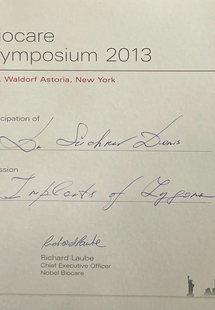 ocare
ymposium 2013
Waldorf Astoria, New York
cipation of
Dr.
ssion
Implants of Zygoma
Richard Laube
Chief Executive Officer
Nobel Biocare